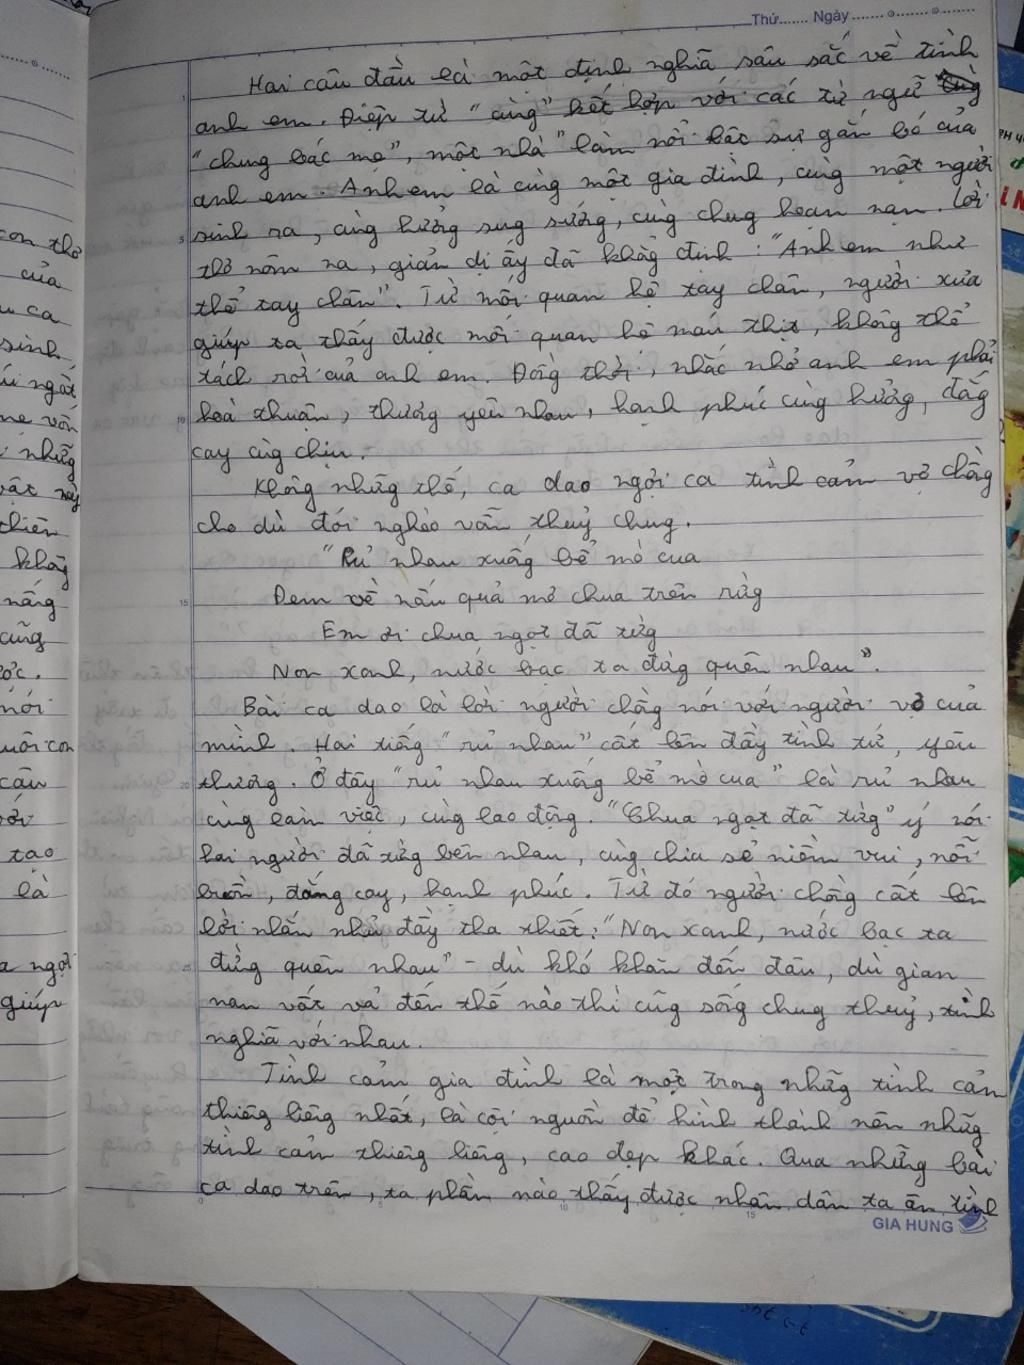 Thứ....... Ngày
Hai câu đầu là một định nghĩa sâu sắc về tình
anh em. Điệp từ "cùng" kết hợp với các từ ngữ
"chung bác mẹ", một nhà" làm nổi bật sự gắn bó của
anh em. Anh em là cùng một gia đình, cùng một người
sinh ra, cùng hưởng sug sướng, cùng chug hoạn nạn. Lời
thơ nôm na, giản dị ấy đã khẳg định: "Anh em như
thể tay chân". Từ mối quan hệ tay chân, người xưa
giúp ta thấy được mối quan hệ máu thịt, không thể
tách rời của anh em. Đồg thời, nhắc nhở anh em phải
hoà thuận, thươg yêu nhau, hạnh phúc cùng hưởng, đắg
cay cùg chịu.
Khôg nhữg thế, ca dao ngợi ca tình cảm vợ chồg
cho dù đói nghèo vẫn thuỷ chung.
"Rủ nhau xuốg bể mò cua
Đem về nấu quả mơ chua trên rừg
Em ơi chua ngọt đã từg
Non xanh, nước bạc ta đừg quên nhau".
Bài ca dao là lời người chồg nói với người vợ của
mình. Hai tiếg "rủ nhau" cất lên đầy tình tứ, yêu
thươg. Ở đây "rủ nhau xuốg bể mò cua" là rủ nhau
cùg làm việc, cùg lao độg. "Chua ngọt đã từg" ý nói
hai người đã từg bên nhau, cùg chia sẻ niềm vui, nỗi
buồn, đắng cay, hạnh phúc. Từ đó người chồg cất lên
lời nhắn nhủ đầy tha thiết: "Non xanh, nước bạc ta
đừg quên nhau" - dù khó khăn đến đâu, dù gian
nan vất vả đến thế nào thì cũg sốg chug thuỷ, tình
nghĩa với nhau.
Tình cảm gia đình là một trong nhữg tình cảm
thiêg liêg nhất, là cội nguồn để hình thành nên nhữg
tình cảm thiêg liêg, cao đẹp khác. Qua nhữg bài
ca dao trên, ta phần nào thấy được nhân dân ta ân tình
GIA HUNG